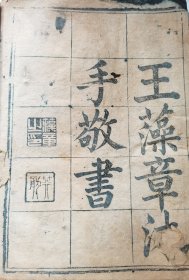 王藻章法
手敬書